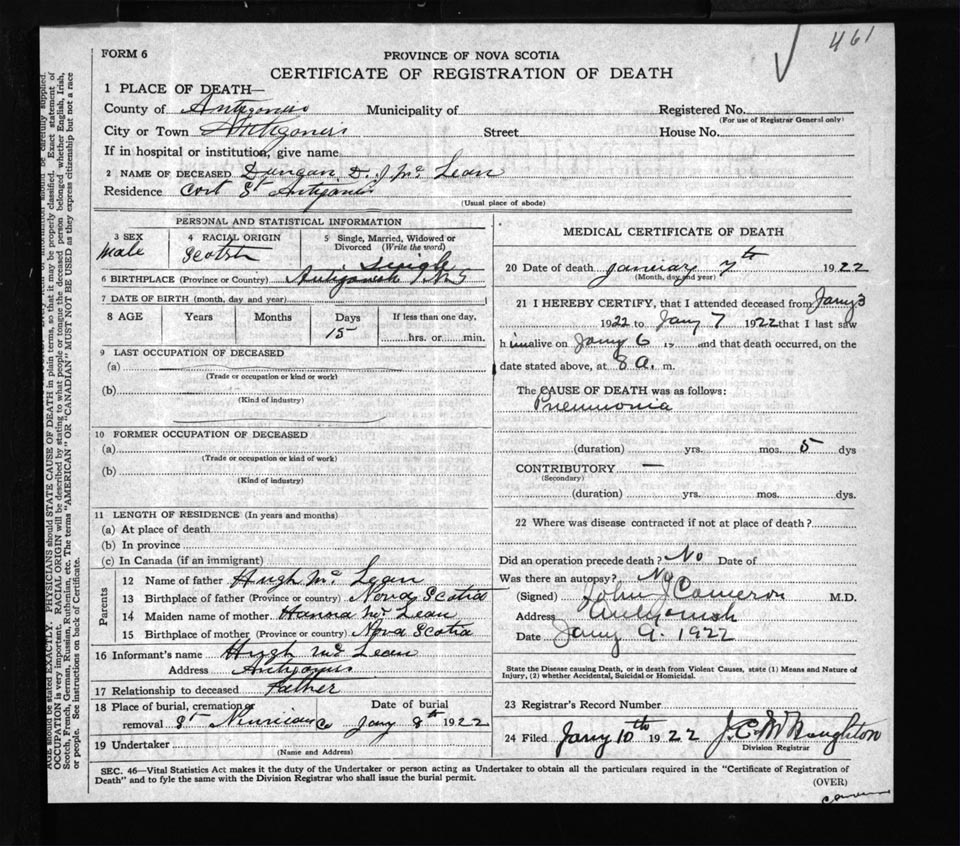 461
FORM 6
PROVINCE OF NOVA SCOTIA
CERTIFICATE OF REGISTRATION OF DEATH
1 PLACE OF DEATH—
County of Antigonis Municipality of Registered No.
(For use of Registrar General only)
City or Town Antigonis Street House No.
If in hospital or institution, give name
2 NAME OF DECEASED Dungan D. J Mc Lean
Residence Cort St Antigonis
(Usual place of abode)
PERSONAL AND STATISTICAL INFORMATION
3 SEX 4 RACIAL ORIGIN 5 Single, Married, Widowed or Divorced (Write the word)
Male Scotch Single
6 BIRTHPLACE (Province or Country) Antigonish N.S
7 DATE OF BIRTH (month, day and year)
8 AGE Years Months Days If less than one day,
15 hrs. or min.
9 LAST OCCUPATION OF DECEASED
(a)
(Trade or occupation or kind or work)
(b)
(Kind of industry)
10 FORMER OCCUPATION OF DECEASED
(a)
(Trade or occupation or kind of work)
(b)
(Kind of industry)
11 LENGTH OF RESIDENCE (In years and months)
(a) At place of death
(b) In province
(c) In Canada (if an immigrant)
Parents
12 Name of father Hugh Mc Lean
13 Birthplace of father (Province or country) Nova Scotia
14 Maiden name of mother Hanna Mc Lean
15 Birthplace of mother (Province or country) Nova Scotia
16 Informant's name Hugh Mc Lean
Address Antigonis
17 Relationship to deceased Father
18 Place of burial, cremation or removal Date of burial
St Ninnians Jany 8th 1922
19 Undertaker
(Name and Address)
MEDICAL CERTIFICATE OF DEATH
20 Date of death January 7th 1922
(Month, day and year)
21 I HEREBY CERTIFY, that I attended deceased from Jany 3
1922 to Jany 7 1922 that I last saw
h im alive on Jany 6 19 and that death occurred, on the
date stated above, at 8 a. m.
The CAUSE OF DEATH was as follows:
Pneumonia
(duration) yrs. mos. 5 dys
CONTRIBUTORY —
(Secondary)
(duration) yrs. mos. dys.
22 Where was disease contracted if not at place of death?
Did an operation precede death? No Date of
Was there an autopsy? No
(Signed) John J Cameron M.D.
Address Antigonish
Date Jany 9. 1922
State the Disease causing Death, or in death from Violent Causes, state (1) Means and Nature of
Injury, (2) whether Accidental, Suicidal or Homicidal.
23 Registrar's Record Number
24 Filed Jany 10th 1922
Division Registrar
SEC. 46—Vital Statistics Act makes it the duty of the Undertaker or person acting as Undertaker to obtain all the particulars required in the "Certificate of Registration of
Death" and to fyle the same with the Division Registrar who shall issue the burial permit.
(OVER)
AGE should be stated EXACTLY. PHYSICIANS should STATE CAUSE OF DEATH in plain terms, so that it may be properly classified. Exact statement of
OCCUPATION is very important. RACIAL ORIGIN will be described by stating to what people or tongue the deceased person belonged whether English, Irish,
Scotch, French, German, Russian, Ruthenian, etc. The terms "AMERICAN" OR "CANADIAN" MUST NOT BE USED as they express citizenship but not a race
or people. See instructions on back of Certificate.